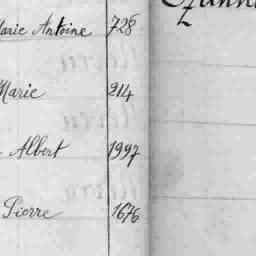 Marie Antoine 728
Marie 914
Albert 1997
Pierre 1676